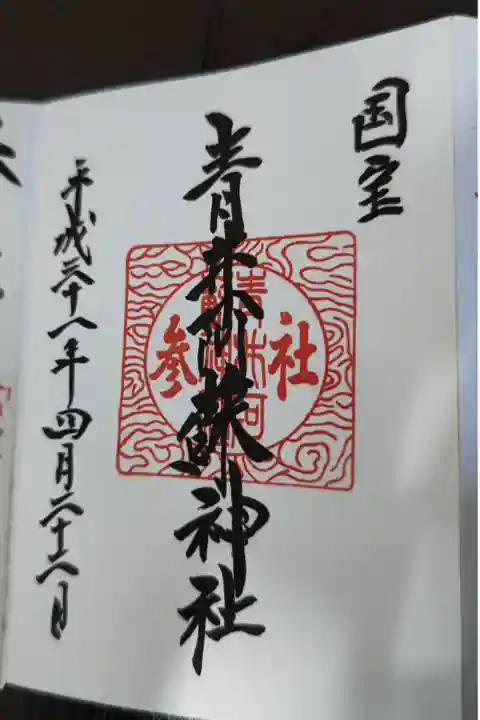 国宝
青井阿蘇神社
社参
青井阿蘇神社
平成三十一年四月二十六日